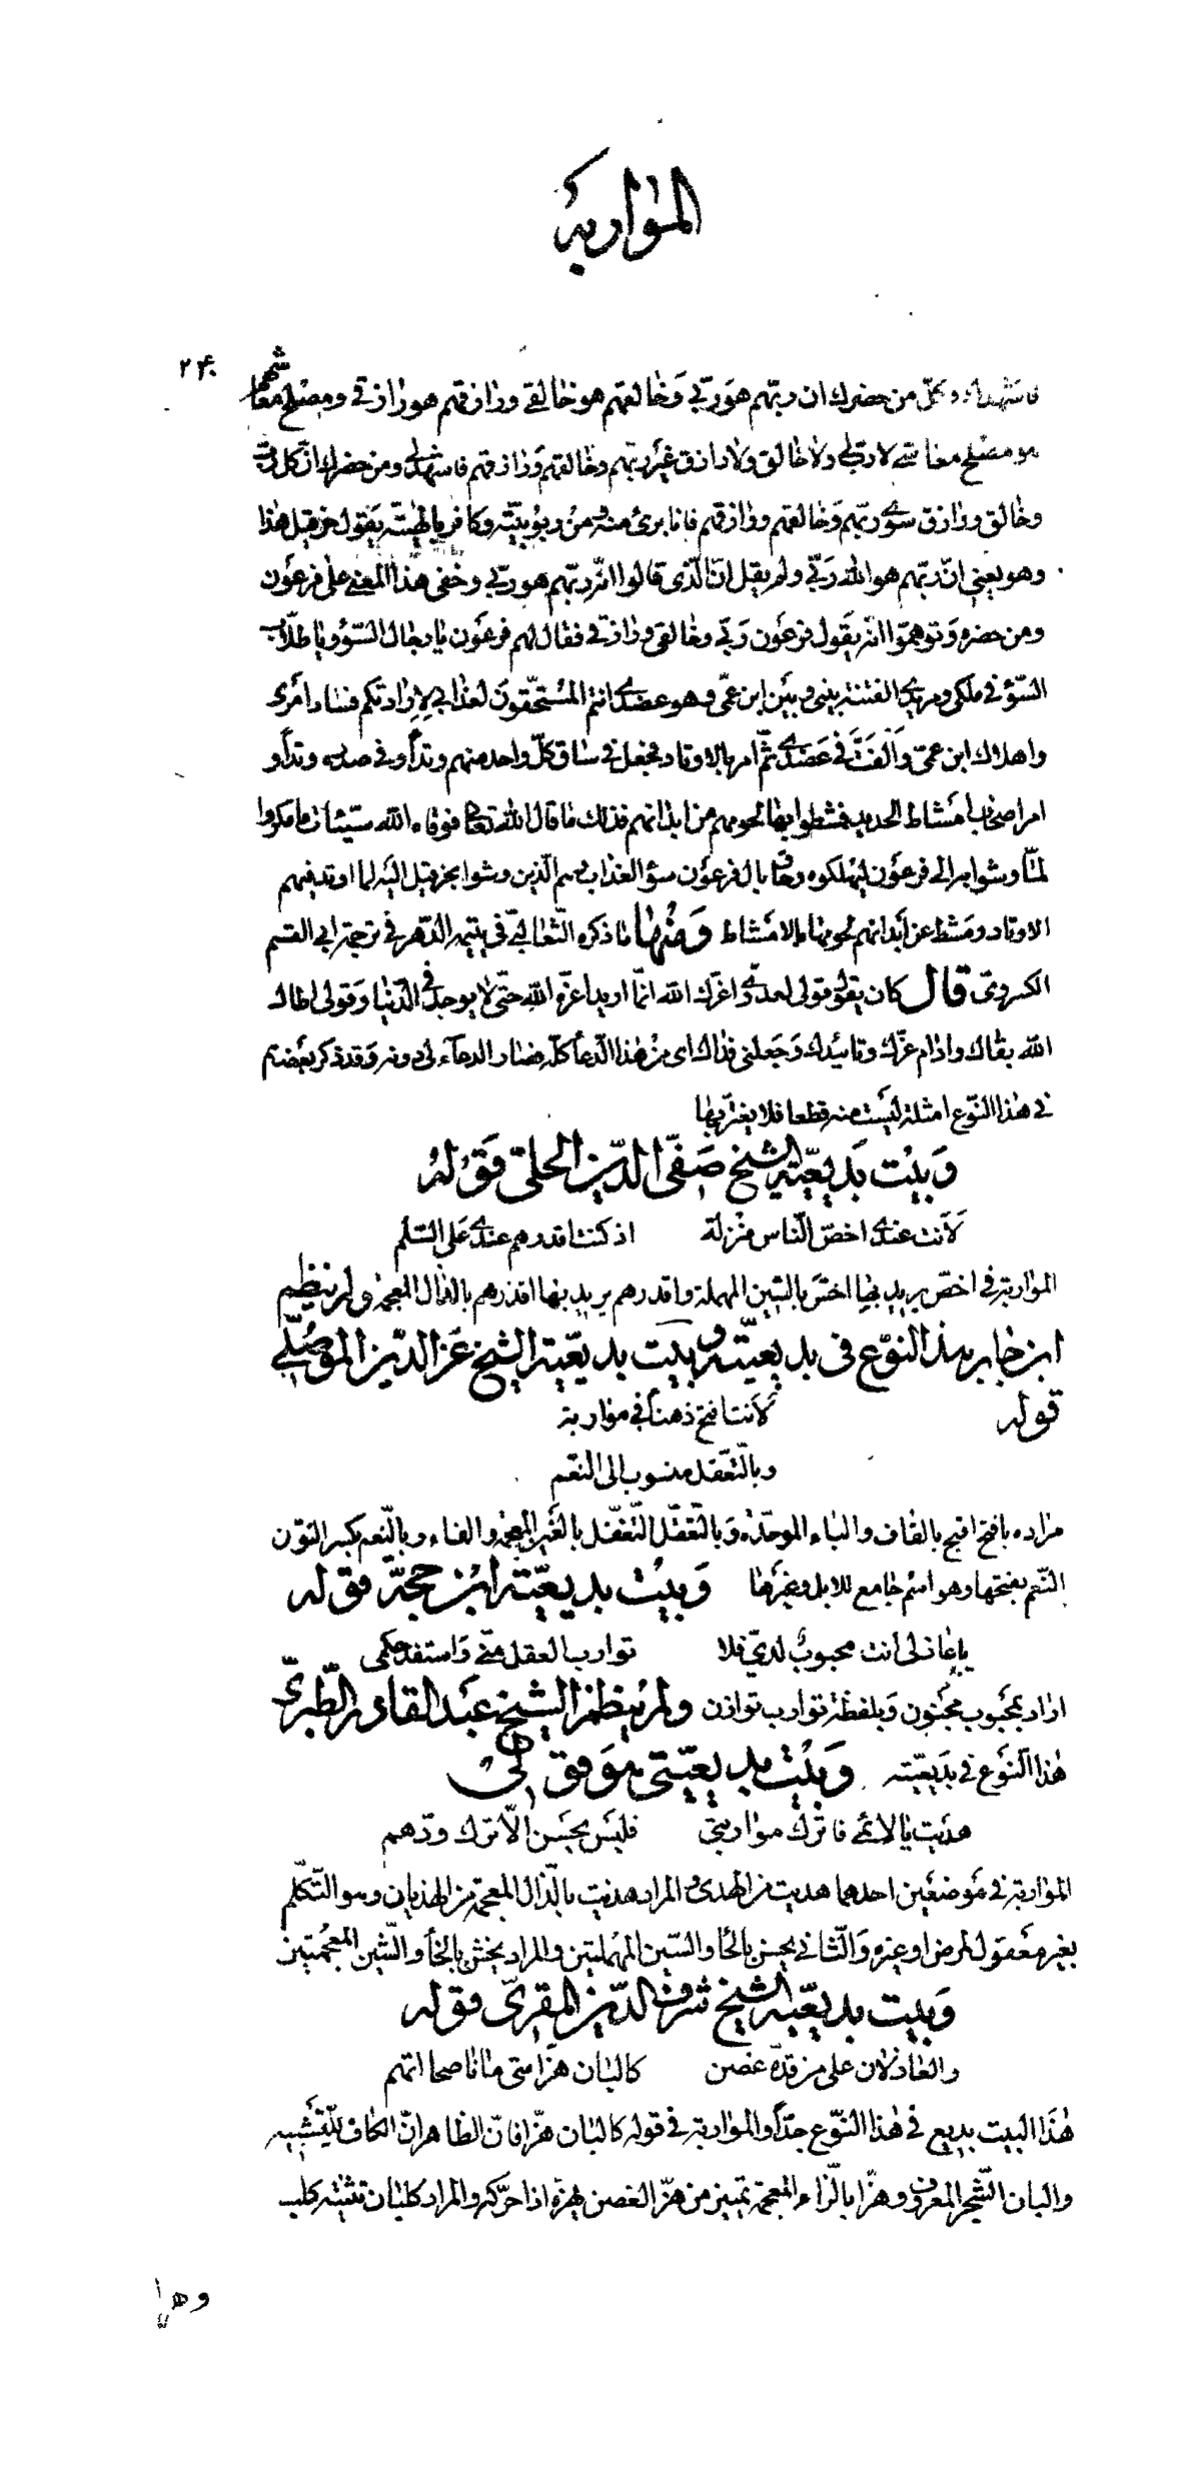 المواربة
٢٤٠
فاشهدك وكل من حضرك ان ربهم هو ربي وخالقهم هو خالقي ورازقهم هو رازقي ومصلح معاشهم
هو مصلح معاشي لا رب لي ولا خالق ولا رازق غير ربهم وخالقهم ورازقهم فاشهدك ومن حضرك ان كل رب
وخالق ورازق سوى ربهم وخالقهم ورازقهم فانا برئ منه ومن ربوبيته وكافر بالهيته يقول حزقيل هذا
وهو يعني ان ربهم هو الله ربي ولم يقل ان الذي قالوا انه ربهم هو ربي وخفي هذا المعنى على فرعون
ومن حضره وتوهموا انه يقول فرعون ربي وخالقي ورازقي فقال لهم فرعون يا رجال السوء ويا طلاب
السوء في ملكي ومريدي الفتنة بيني وبين ابن عمي وهو عضدي انتم المستحقون لعذابي لارادتكم فساد امري
واهلاك ابن عمي والفت في عضدي ثم امر بالاوتاد فجعل في ساق كل واحد منهم وتدا وفي صدره وتدا و
امر اصحاب امشاط الحديد فشطوا بها لحومهم من ابدانهم فذلك ما قال الله تعالى فوقاه الله سيئات ما مكروا
لما وشوا به الى فرعون ليهلكوه وحاق بال فرعون سوء العذاب هم الذين وشوا بحزقيل اليه لما اوتد فيهم
الاوتاد ومشط عن ابدانهم لحومها بالامشاط ومنها ما ذكره الثعالبي في يتيمه الدهر في ترجمة ابي القسم
الكسروي قال كان يقول قولي لعدي اعزك الله انما اريد اعزه الله حتى لا يوجد في الدنيا وقولي اطال
الله بقاك وادام عزك وتاييدك وجعلني فداك اي من هذا الدعا كله فصار الدعاء لي دونه وقد ذكر بعضهم
في هذا النوع امثلة ليست منه قطعا فلا يغتر بها
وبيت بديعية الشيخ صفي الدين الحلي قوله
لانت عندي اخص الناس منزلة    اذ كنت اقدرهم عندي على السلم
المواربة في اخص يريد بها اخس بالسين المهملة واقدرهم يريد بها اقذرهم بالذال المعجمة ولم ينظم
ابن جابر هذا النوع في بديعيته وبيت بديعية الشيخ عز الدين الموصلي
قوله    لانت افتح ذهنا في مواربة
وبالتعقل منسوب الى النعم
مراده بافتح اقبح بالقاف والباء الموحدة وبالتعقل التغفل بالغين المعجمة والفاء وبالنعم بكسر النون
النعم بفتحها وهو اسم جامع للابل وغيرها وبيت بديعية ابن حجة قوله
يا عاذلي انت محبوب لدي فلا    توارب العقل مني واستفد حكمي
اراد بمحبوب مجنون وبلفظة توارب توازن ولم ينظم الشيخ عبد القادر الطبري
هذا النوع في بديعيته وبيت بديعيتي هو قولي
هديت يا لائمي فاترك مواربتي    فليس يحسن الا ترك ودهم
المواربة في موضعين احدهما هديت من الهدى والمراد هذيت بالذال المعجمة من الهذيان وهو التكلم
بغير معقول لمرض او غيره والثاني يحسن بالحا والسين المهملتين والمراد يخشن بالخا والشين المعجمتين
وبيت بديعية الشيخ شرف الدين المقري قوله
والعاذلان على من قده غصن    كالبان هزا متى ما ناصحا اتهم
هذا البيت بديع في هذا النوع جدا والمواربة في قوله كالبان هزا فان الظاهر ان الكاف للتشبيه
والبان الشجر المعروف وهزا بالزاء المعجمة تمييز من هز الغصن يهزه اذا حركه والمراد كلبان تثنيه كلب
وهرا